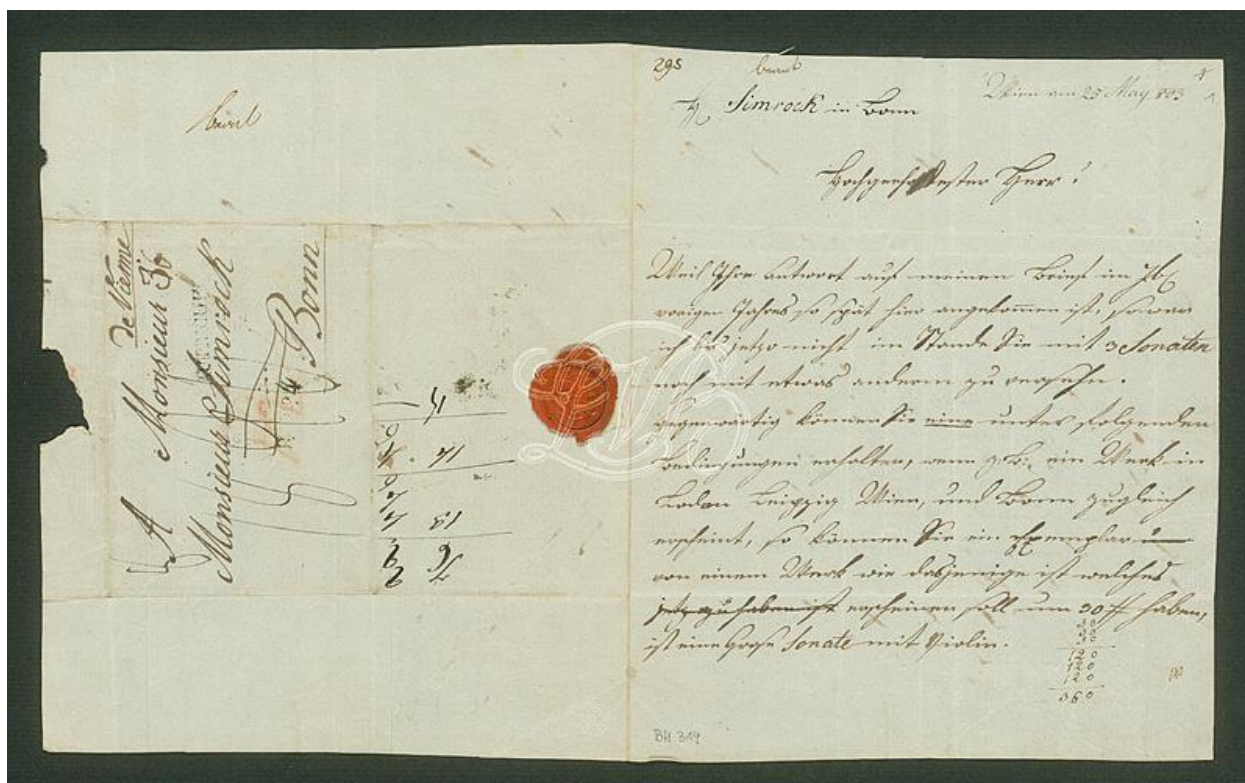 de Vienne
A Monsieur
Monsieur Simrock
Bonn
295
Wien am 25 May 803
H. Simrock in Bonn
Hochgeehrtester Herr!
Weil Ihre Antwort auf meinen Brief im
vorigen Jahres so spät hier angekommen ist, so war
ich bis jetzo nicht im Stande Sie mit 3 Sonaten
noch mit etwas anderm zu versehn.
Gegenwärtig können Sie eine unter folgenden
Bedingungen erhalten, wenn z.B. ein Werk in
Leipzig Wien, und Bonn zugleich
erscheint, so können Sie ein Exemplar
von einem Werk wie dasjenige ist welches
jetz zu haben ist erscheinen soll um 30 haben,
ist eine große Sonate mit Violin.
30
30
120
120
120
360
BH 319